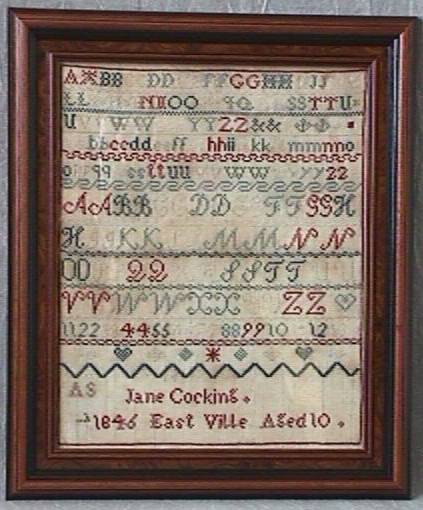 AABB DD FFGGHH JJ
LL NNOO QQ SSTTU
U WW YYZZ&&
bbccdd ff hhii kk mmnno
o qq ssttuu WW yyzz
AABB DD FFGGH
H KK MMNN
OO QQ SSTT
VVWWXX ZZ
1122 4455 889910 12
AS
Jane Cocking
1846 East Ville Aged 10